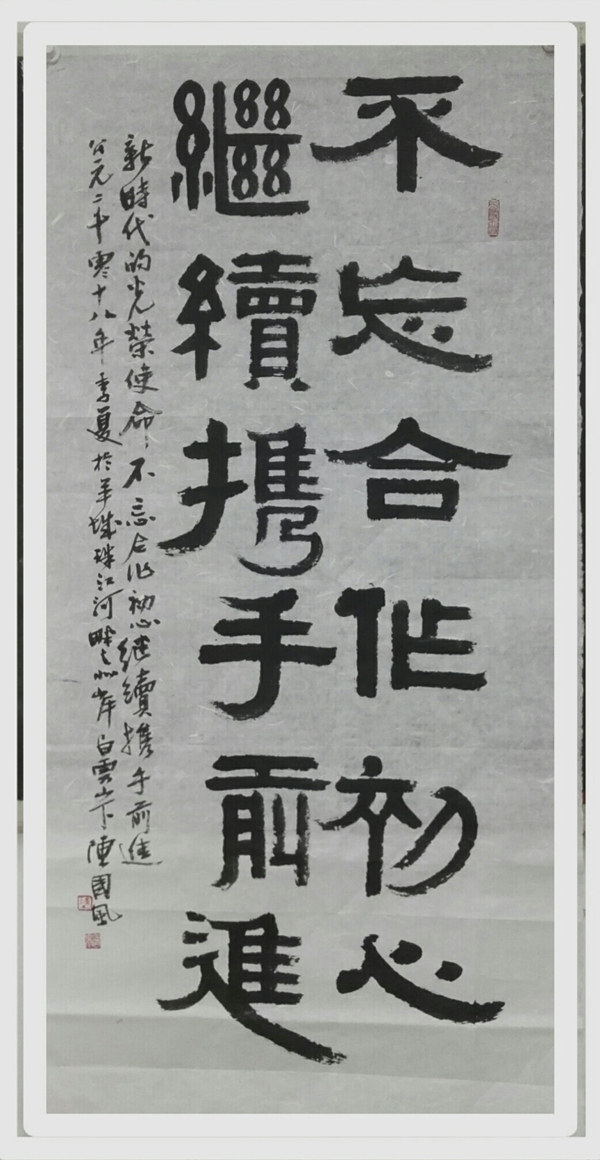 不忘合作初心
繼續携手前進
新時代的光榮使命,不忘合作初心继續携手前進
公元二千零十八年季夏於羊城珠江河畔之北岸白雲山下陳國風